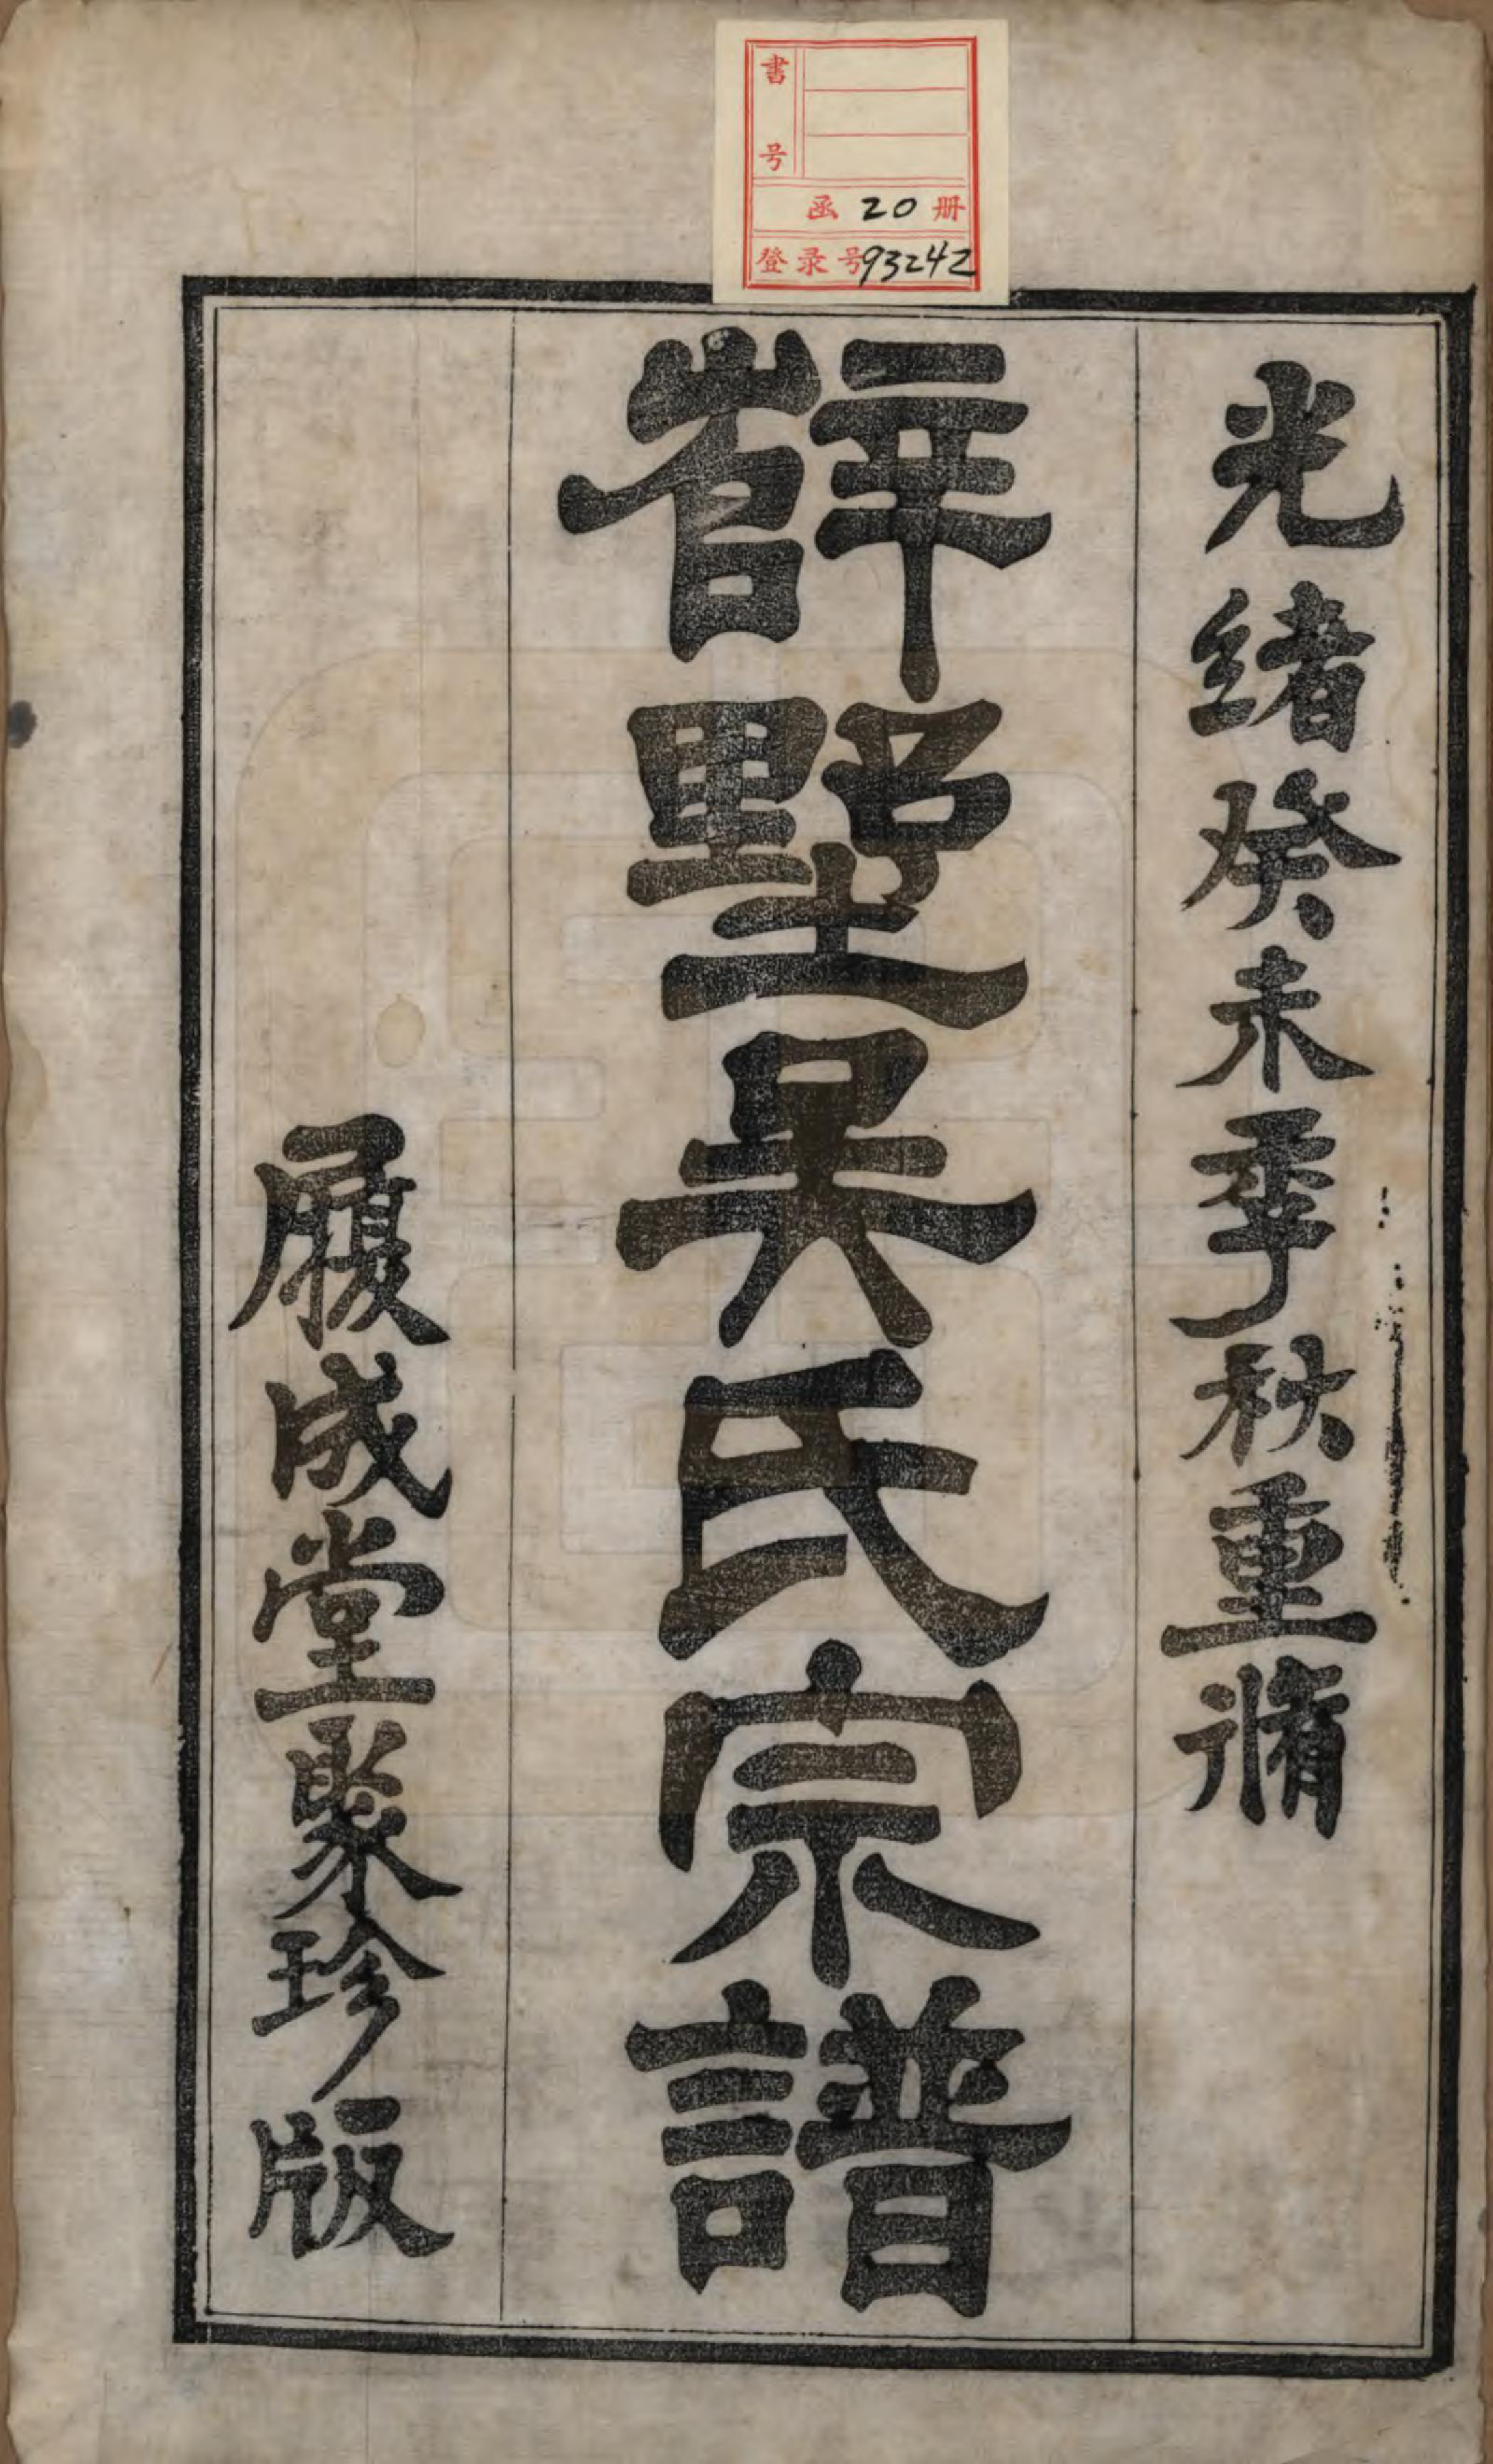 書号
函 20 册
登录号 93242
光緒癸未季秋重脩
薛墅吴氏宗譜
履成堂聚珍版